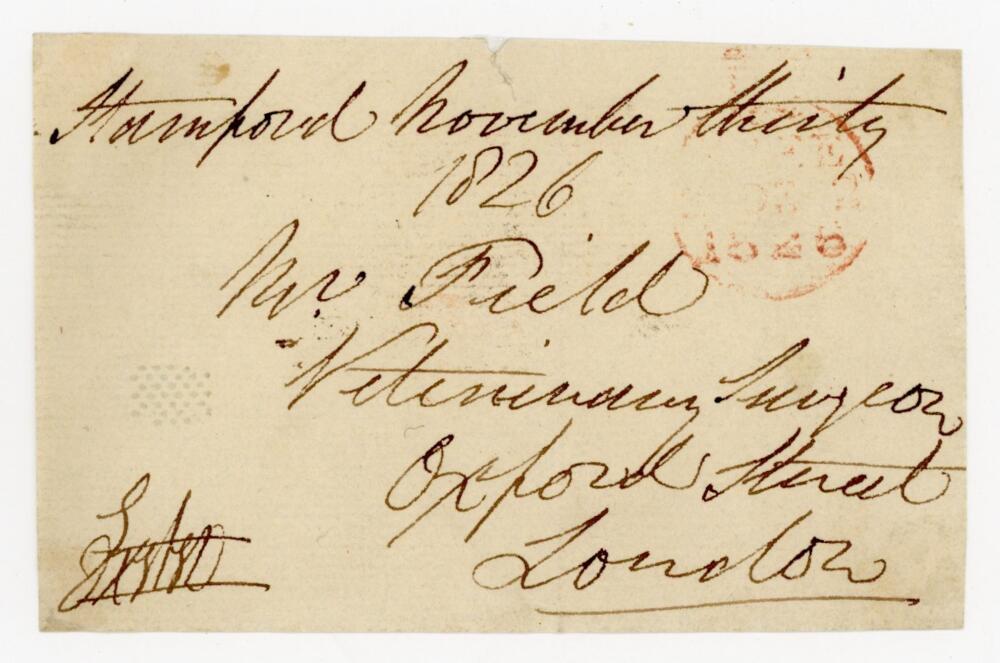 Stamford November thirty
1826
Mr. Field
Veterinary Surgeon
Oxford Street
London
Exeter
1826